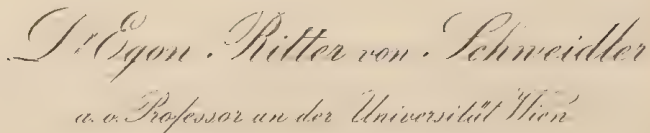 Dr. Egon Ritter von Schweidler
a. o. Professor an der Universität Wien